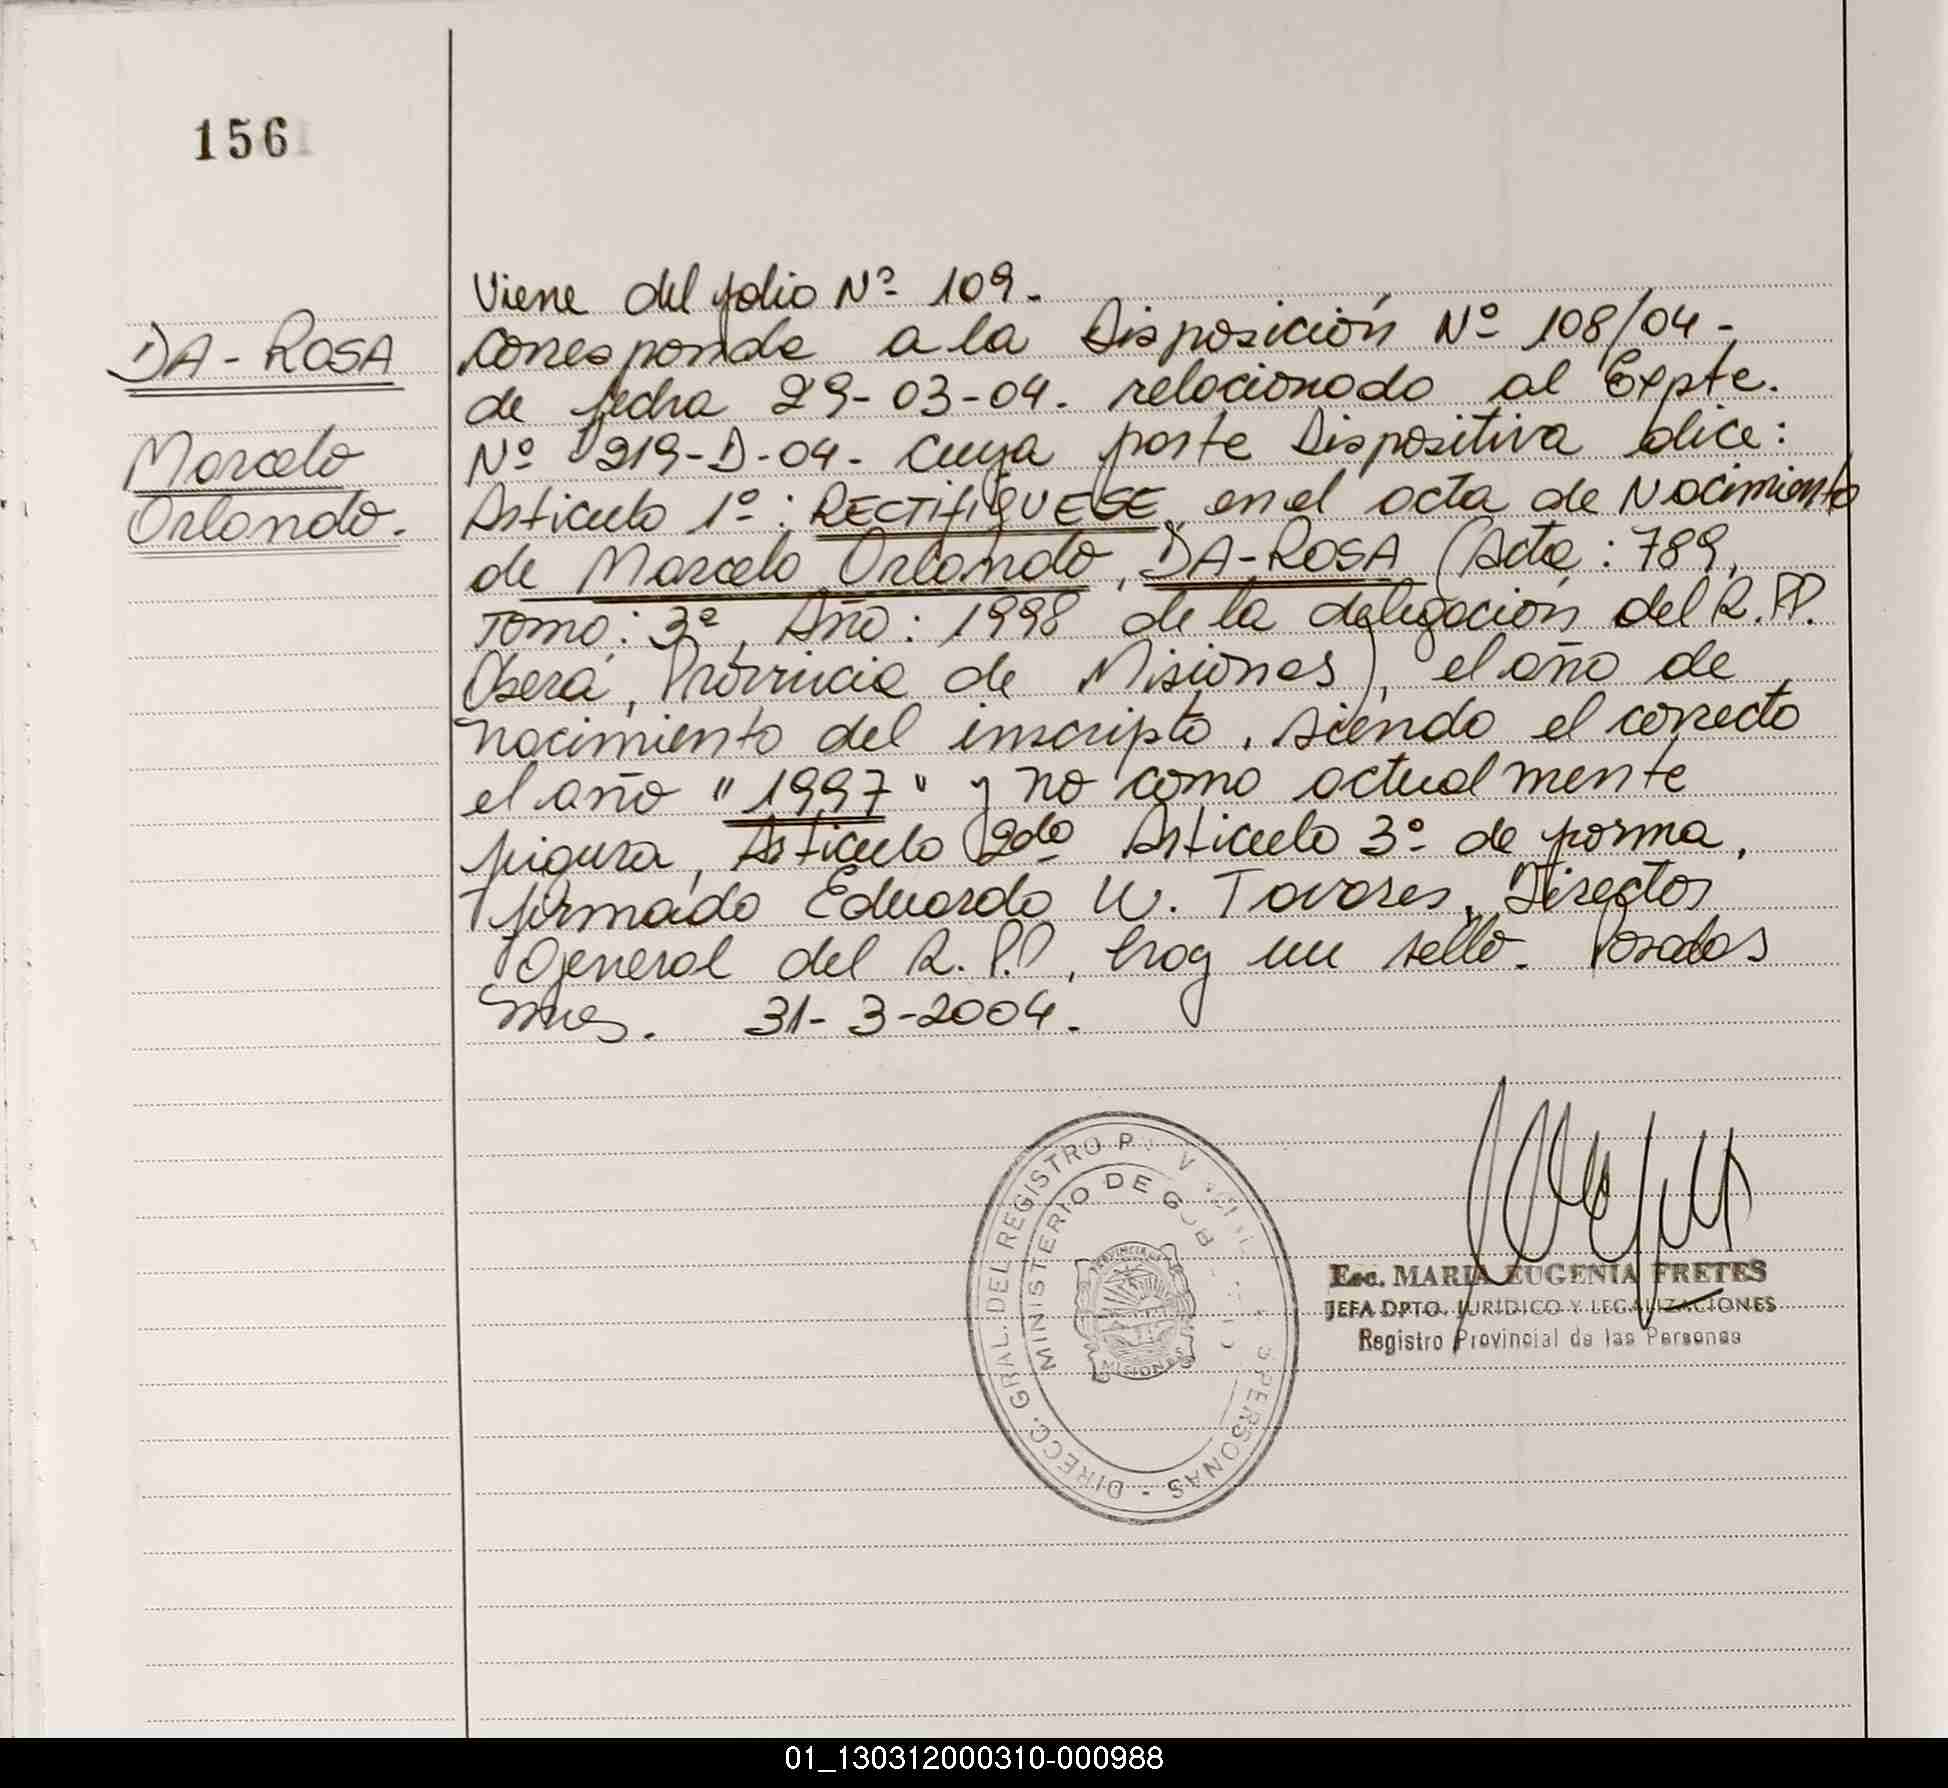 156
DA-ROSA
Marcelo
Orlando.
Viene del folio Nº 109.
Corresponde a la Disposición Nº 108/04-
de fecha 29-03-04. relacionado al Expte.
Nº 219-D-04- Cuya parte Dispositiva dice:
Articulo 1º: RECTIFIQUESE en el acta de Nacimiento
de Marcelo Orlando, DA-ROSA (Acta: 789,
Tomo: 3º, Año: 1998 de la delegación del R.PP.
Oberá, Provincia de Misiones), el año de
nacimiento del inscripto, siendo el correcto
el año "1997" y no como actualmente
figura, Articulo 2do Articulo 3º de forma,
firmado Eduardo W. Tavares, Director
General del R.P.P, hay un sello- Posadas
Mnes. 31-3-2004.
DIRECC. GRAL. DEL REGISTRO PERSONAS -
MINISTERIO DE
PROVINCIA DE
MISIONES
Esc. MARIA EUGENIA FRETES
JEFA DPTO. JURIDICO Y LEGALIZACIONES
Registro Provincial de las Personas
01_130312000310-000988